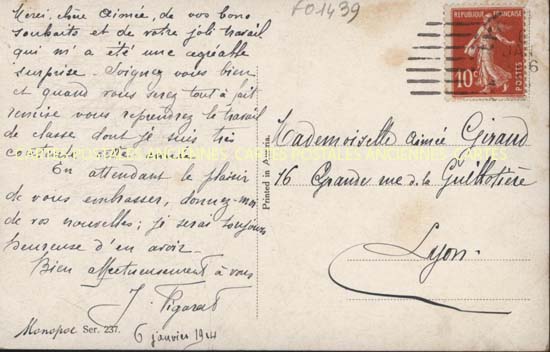 Merci, chère Aimée, de vos bons
souhaits et de votre joli travail
qui m'a été une agréable
surprise. Soignez vous bien
et quand vous serez tout à fait
remise vous reprendrez le travail
de classe dont je suis très
cette année.
En attendant le plaisir
de vous embrasser, donnez-moi
de vos nouvelles; je serai toujours
heureuse d'en avoir.
Bien affectueusement à vous
J.
6 janvier 1914
Monopol Ser. 237.
Printed in Austria
FO1439
REPUBLIQUE FRANÇAISE
10c
POSTES
6
Mademoiselle Aimée Giraud
16 Grande rue de la Guillotière
Lyon.
CARTES POSTALES ANCIENNES CARTES POSTALES ANCIENNES CARTES